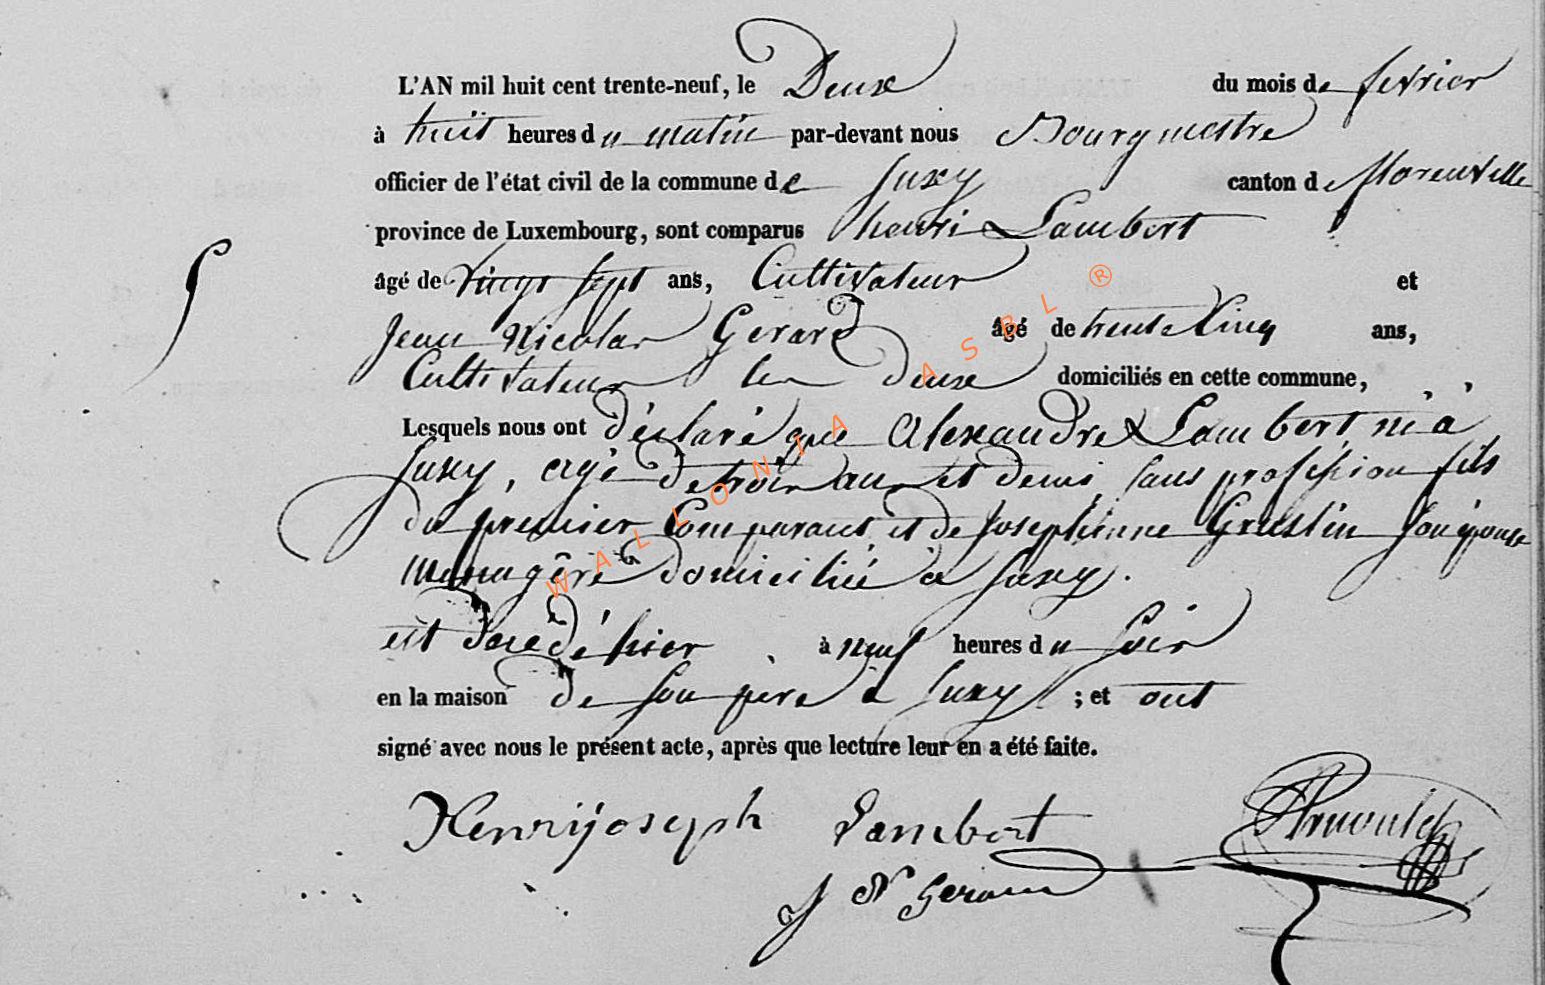 L'AN mil huit cent trente-neuf, le Deux du mois de fevrier
à huit heures du matin par-devant nous Bourgmestre
officier de l'état civil de la commune de Suxy canton de florenville
province de Luxembourg, sont comparus henri Lambert
âgé de vingt sept ans, Cultivateur et
Jean Nicolas Gerard âgé de trente Cinq ans,
Cultivateur les deux domiciliés en cette commune,
Lesquels nous ont déclaré que Alexandre Lambert né à
Suxy, agé de trois ans et demi, sans profession fils
du premier Comparant, et de Josephienne Grustin son épouse
menagère domiciliée à Suxy.
est décédé hier à neuf heures du soir
en la maison de son père à Suxy ; et ont
signé avec nous le présent acte, après que lecture leur en a été faite.
Henrijoseph Lambert
J N Gerard
WALLONIA ASBL ®